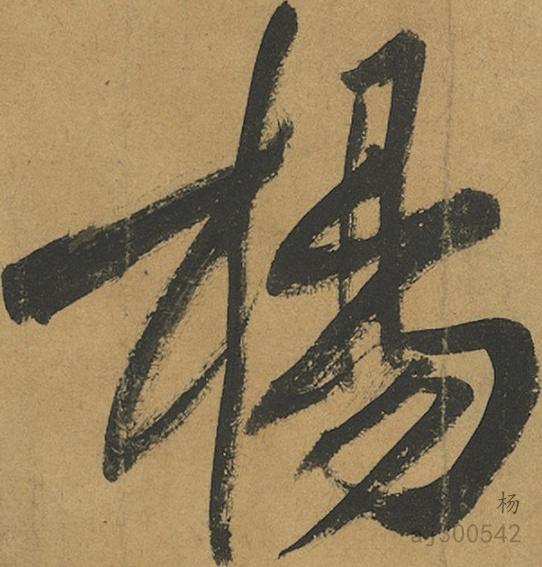 楊
杨
aj300542